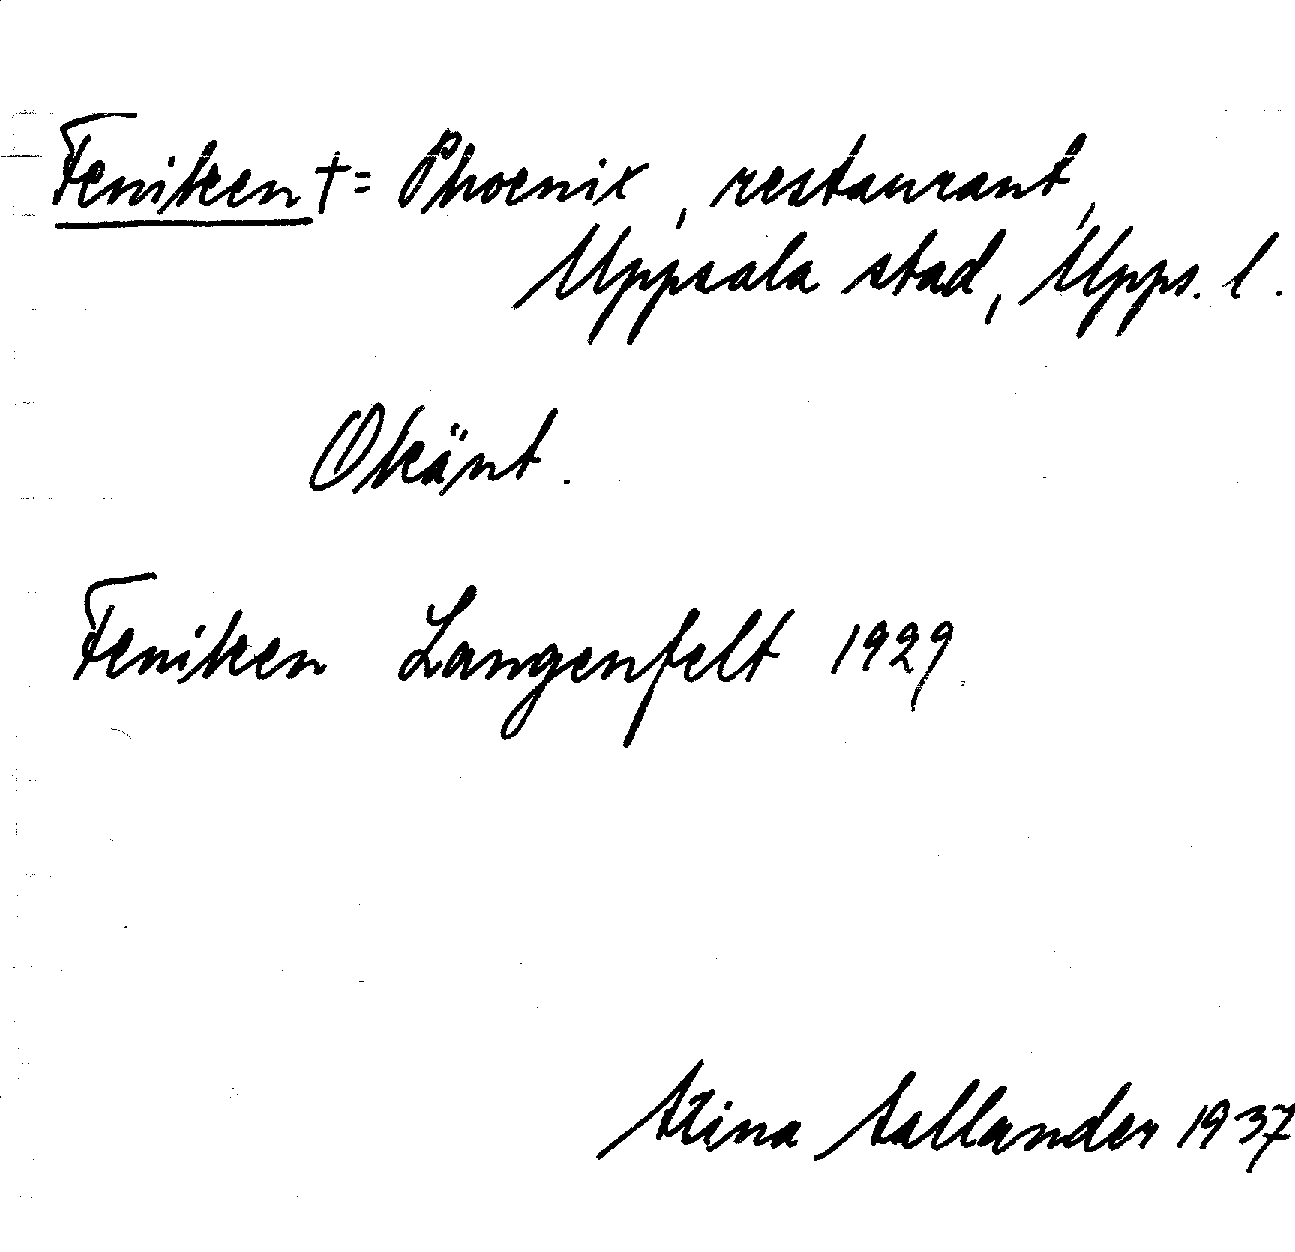 Feniken † = Phoenix, restaurant,
Uppsala stad, Upps. l.
Okänt.
Feniken Langenfelt 1929.
Stina Sallander 1937